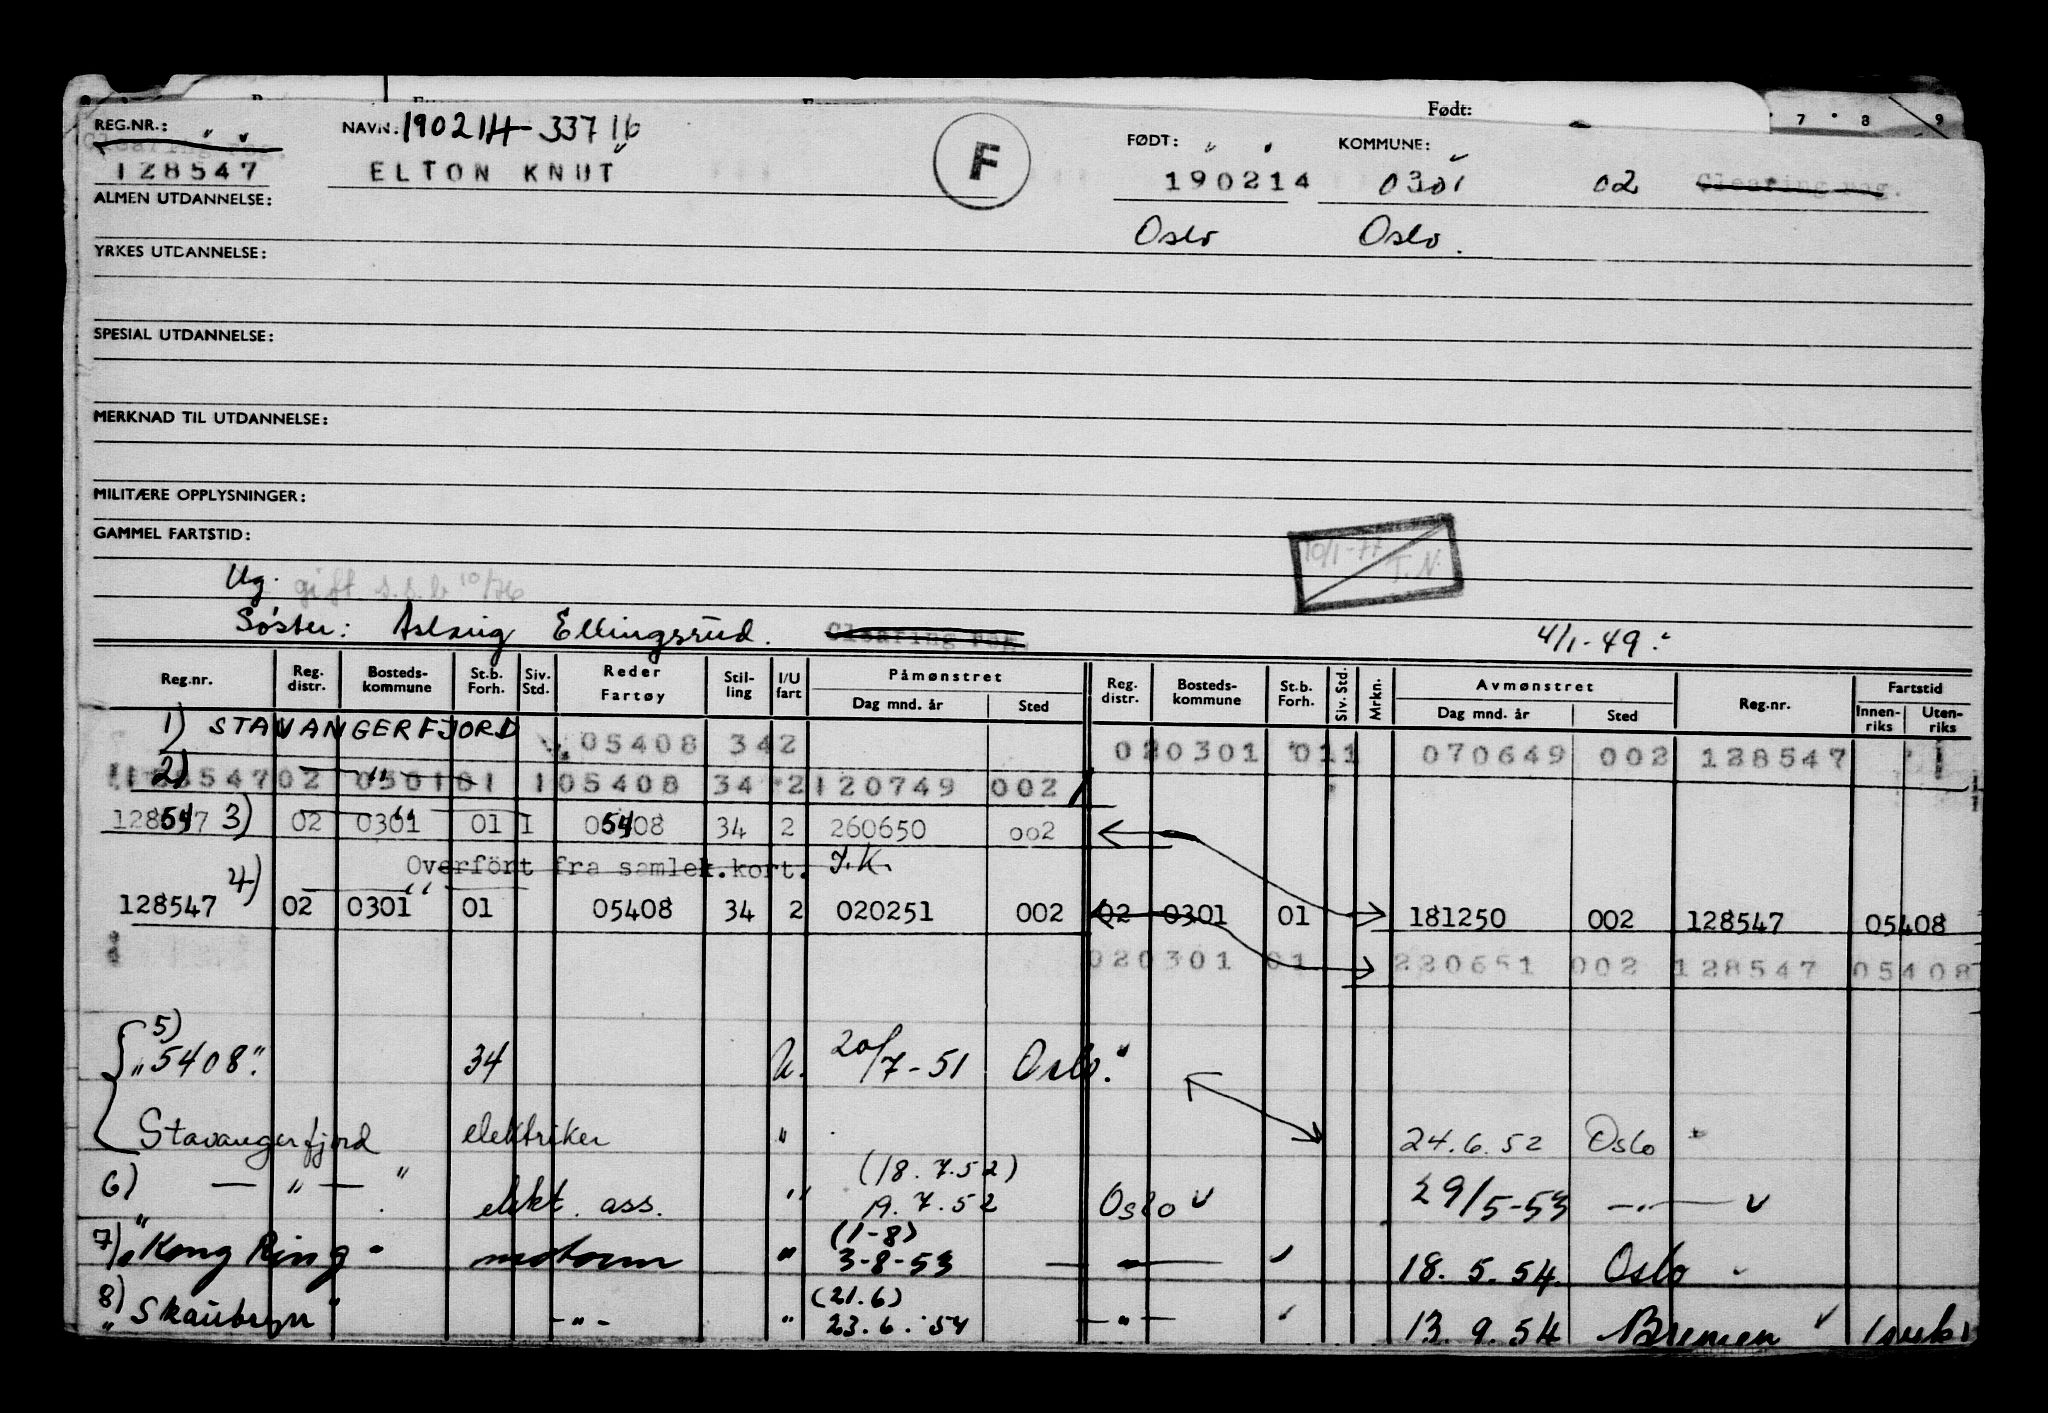 Født:
7 8 9
REG.NR.: NAVN: 190214-33716 FØDT: KOMMUNE:
128547 ELTON KNUT F 190214 0301 02 Clearing reg.
ALMEN UTDANNELSE:
Oslo Oslo.
YRKES UTDANNELSE:
SPESIAL UTDANNELSE:
MERKNAD TIL UTDANNELSE:
MILITÆRE OPPLYSNINGER:
GAMMEL FARTSTID:
10/1-77 T.N.
Ug. gift s.s.b 10/76
Søster: Aslaug Ellingsrud. Clearing reg. 4/1-49.
Reg.nr. Reg. distr. Bosteds- kommune St.b. Forh. Siv. Std. Reder Fartøy Stil- ling I/U fart Påmønstret Reg. distr. Bosteds- kommune St.b. Forh. Siv. Std. Mrkn. Avmønstret Reg.nr. Fartstid
Dag mnd. år Sted Dag mnd. år Sted Innen- riks Uten- riks
1) STAVANGERFJORD 05408 342 020301 011 070649 002 128547
2) " 128547 02 0301 01 1 05408 34 2 120749 002
128547 3) 02 0301 01 1 05408 34 2 260650 002
Overført fra samlek.kort. J.K.
4) "
128547 02 0301 01 05408 34 2 020251 002 02 0301 01 181250 002 128547 05408
020301 01 220651 002 128547 05408
5)
"5408" 34 U. 20/7-51 Oslo."
Stavangerfjord elektriker " 24.6.52 Oslo
6) — " — " elekt. ass. " (18.7.52) 19.7.52 Oslo 29/5-53 — " —
7) "Kong Ring" motorm " (1-8) 3-8-53 — " — 18.5.54. Oslo
8) "Skaubryn" - " - " (21.6) 23.6.54 — " — 13.9.54 Bremen